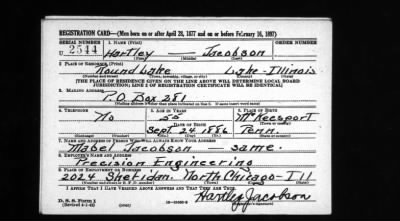 REGISTRATION CARD—(Men born on or after April 28, 1877 and on or before February 16, 1897)
SERIAL NUMBER 1. NAME (Print) ORDER NUMBER
U 2544 Hartley Jacobson
2. PLACE OF RESIDENCE (Print)
Round Lake Lake - Illinois
(THE PLACE OF RESIDENCE GIVEN ON THE LINE ABOVE WILL DETERMINE LOCAL BOARD
JURISDICTION; LINE 2 OF REGISTRATION CERTIFICATE WILL BE IDENTICAL)
3. MAILING ADDRESS
P.O Box 281
4. TELEPHONE 5. AGE IN YEARS 6. PLACE OF BIRTH
No 55 McKeesport
DATE OF BIRTH
Sept 24 1886 Penn.
7. NAME AND ADDRESS OF PERSON WHO WILL ALWAYS KNOW YOUR ADDRESS
Mabel Jacobson same.
8. EMPLOYER'S NAME AND ADDRESS
Precision Engineering
9. PLACE OF EMPLOYMENT OR BUSINESS
2024 Sheridan. North Chicago - Ill
I AFFIRM THAT I HAVE VERIFIED ABOVE ANSWERS AND THAT THEY ARE TRUE.
D. S. S. Form 1
(Revised 4-1-42) Hartley Jacobson